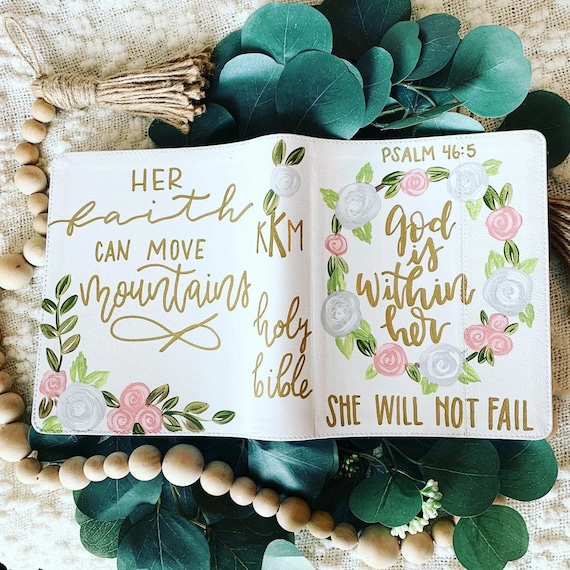 HER
faith
CAN MOVE
mountains
KKM
holy
bible
PSALM 46:5
God
is
within
her
SHE WILL NOT FAIL